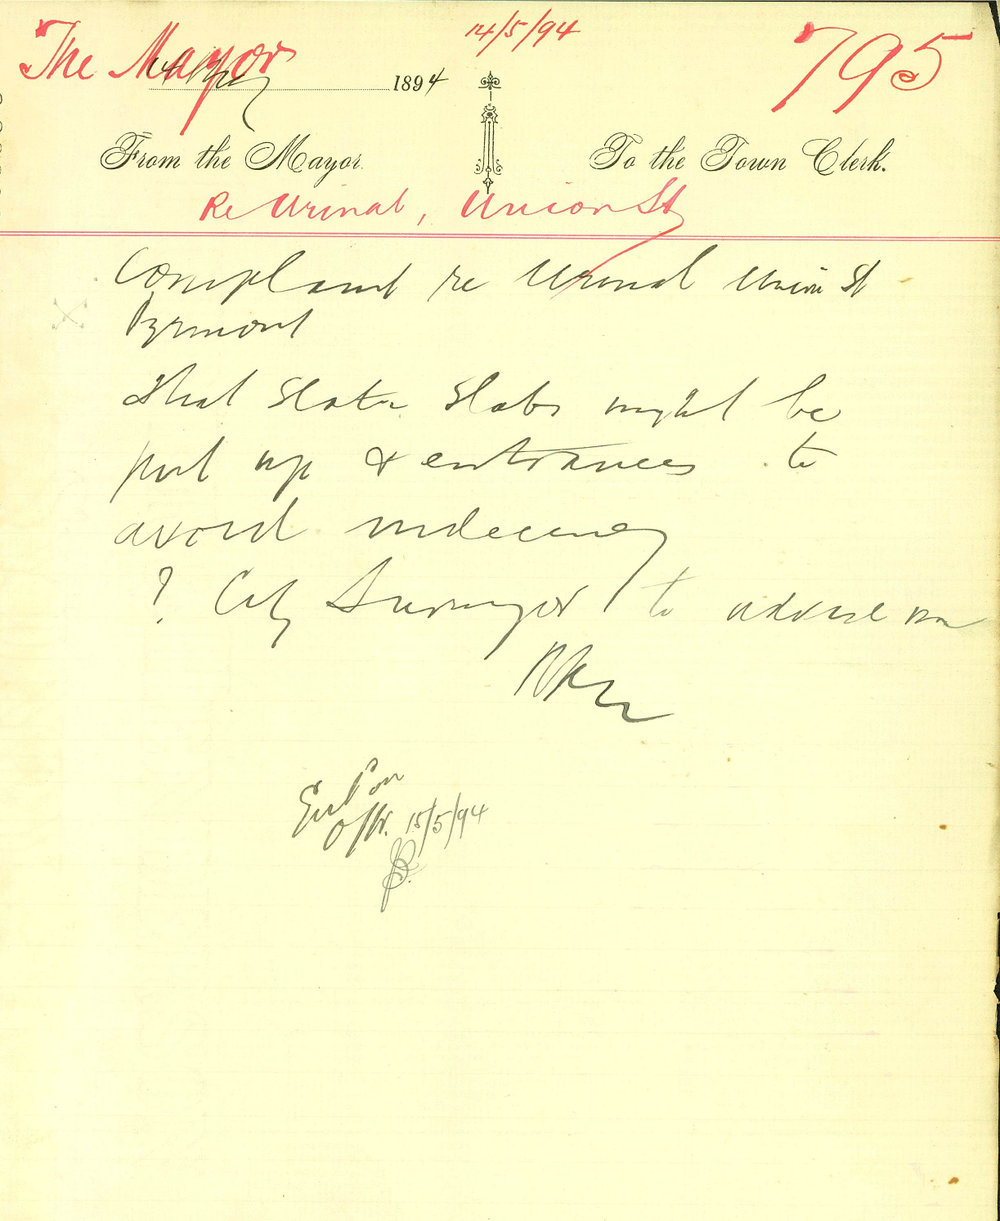 The Mayor 14/5/94 795
14 May 1894
From the Mayor. To the Town Clerk.
Re Urinal, Union St
Complaint re Urinal Union St
Pyrmont
That Slate Slabs might be
put up & entrances to
avoid indecency
? City Surveyor to advise me
15/5/94